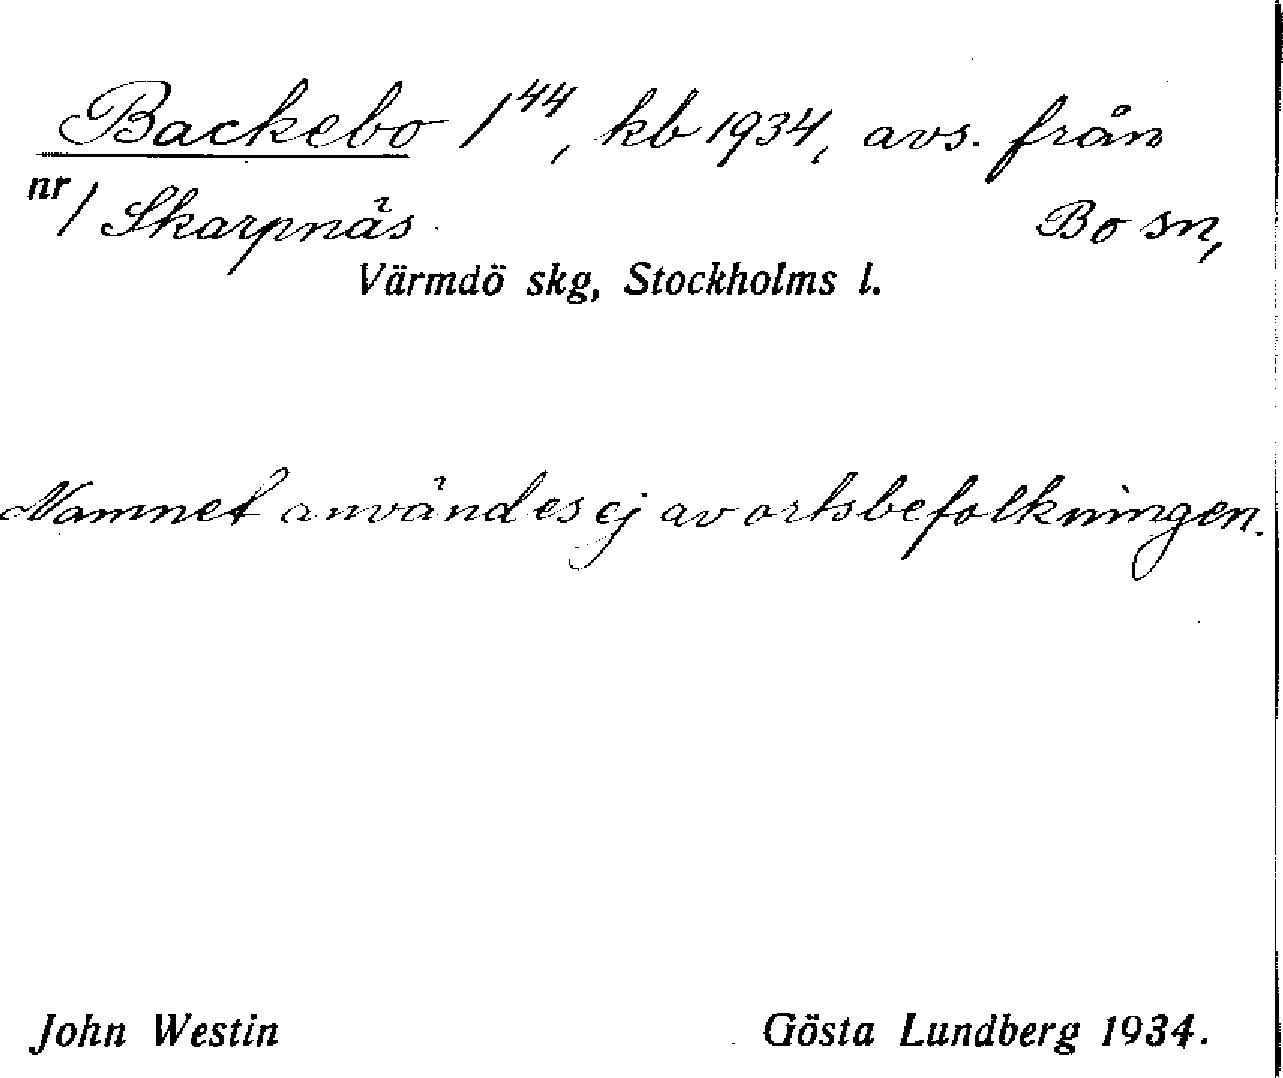 Backebo 1⁴⁴, kb 1934, avs. från
nr 1 Skarpnäs. Bo sn,
Värmdö skg, Stockholms l.
Namnet användes ej av ortsbefolkningen.
John Westin Gösta Lundberg 1934.